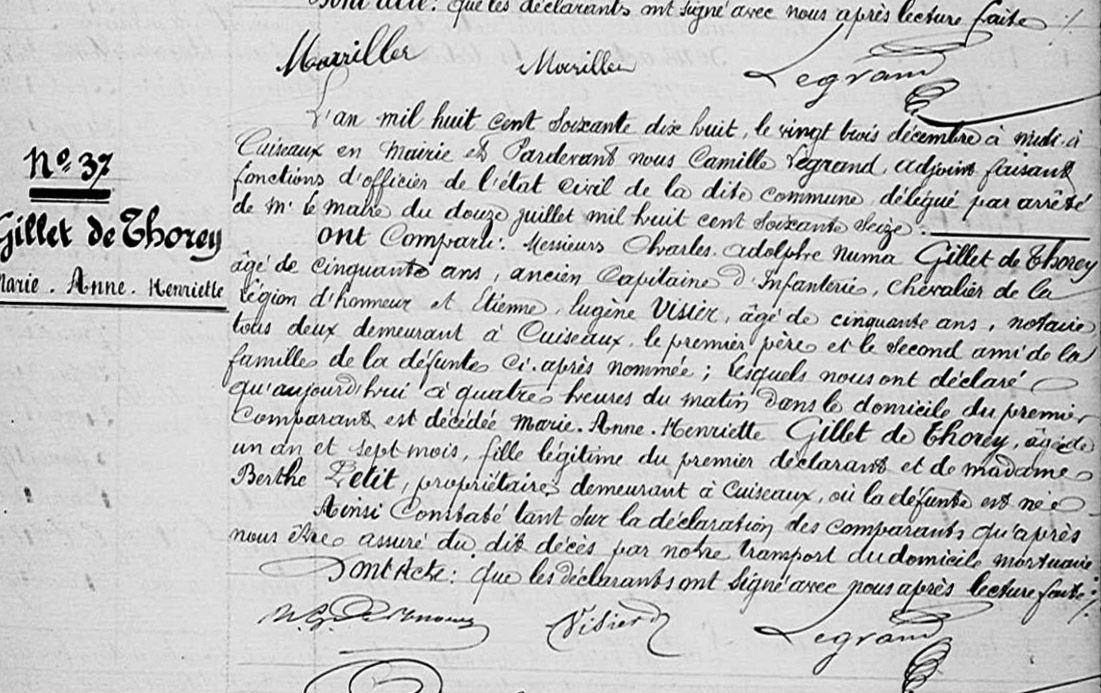 Dont acte: que les déclarants ont signé avec nous après lecture faite ./.
Marriller Moriller Legrand
L'an mil huit cent soixante dix huit, le vingt trois décembre à midi à
Cuiseaux en Mairie et Pardevant nous Camille Legrand, adjoint faisant
fonctions d'officier de l'état civil de la dite commune, délégué par arrêté
de Mr le maire du douze juillet mil huit cent soixante seize.
N° 37
Gillet de Thorey
Marie. Anne. Henriette
ont Comparu: Messieurs Charles. Adolphe Numa Gillet de Thorey
âgé de cinquante ans, ancien Capitaine d'Infanterie, chevalier de la
légion d'honneur et Etienne, Eugène Visier, âgé de cinquante ans, notaire
tous deux demeurant à Cuiseaux, le premier père et le second ami de la
famille de la défunte ci-après nommée; lesquels nous ont déclaré
qu'aujourd'hui à quatre heures du matin dans le domicile du premier
Comparant est décédée Marie. Anne. Henriette Gillet de Thorey, âgée de
un an et sept mois, fille légitime du premier déclarant et de madame
Berthe Petit, propriétaires demeurant à Cuiseaux, où la défunte est née
Ainsi Constaté tant sur la déclaration des comparants qu'après
nous être assuré du dit décès par notre transport du domicile mortuaire
Dont Acte: que les déclarants ont signé avec nous après lecture faite ./.
Visier Legrand